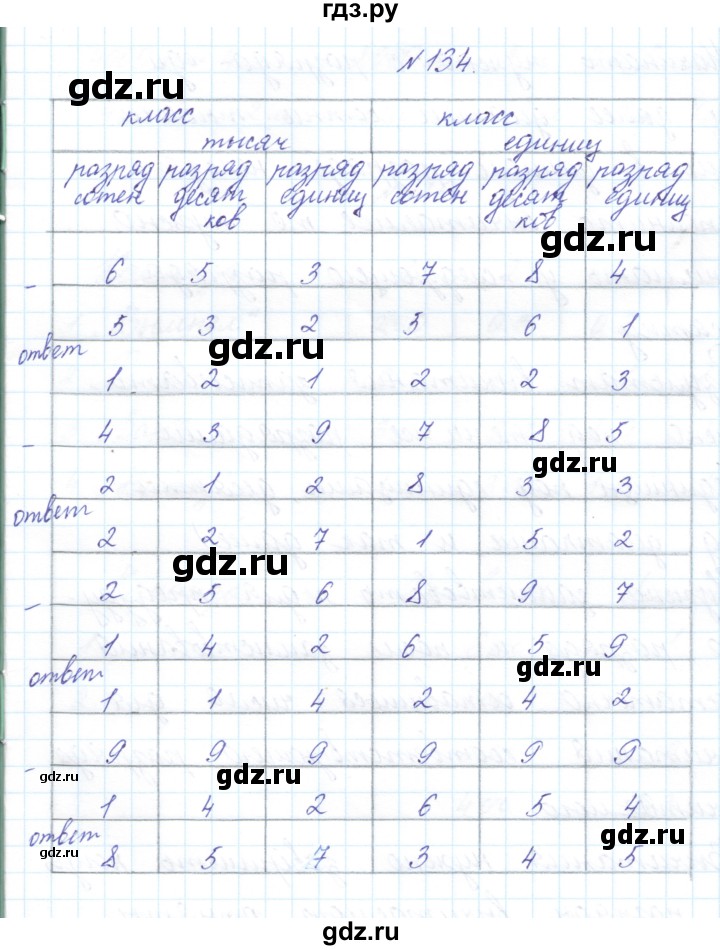 гдз.ру
№134.
gdz.ru
класс тысяч класс единиц
разряд сотен разряд десятков разряд единиц разряд сотен разряд десятков разряд единиц
gdz.ru
- 6 5 3 7 8 4
5 3 2 5 6 1
gdz.ru
ответ 1 2 1 2 2 3
- 4 3 9 7 8 5
gdz.ru
2 1 2 8 3 3
ответ 2 2 7 1 5 2
gdz.ru
- 2 5 6 8 9 7
1 4 2 6 5 9
gdz.ru
ответ 1 1 4 2 4 2
- 9 9 9 9 9 9
gdz.ru
gdz.ru
1 4 2 6 5 4
gdz.ru
ответ 8 5 7 3 4 5
gdz.ru
гдз.ру